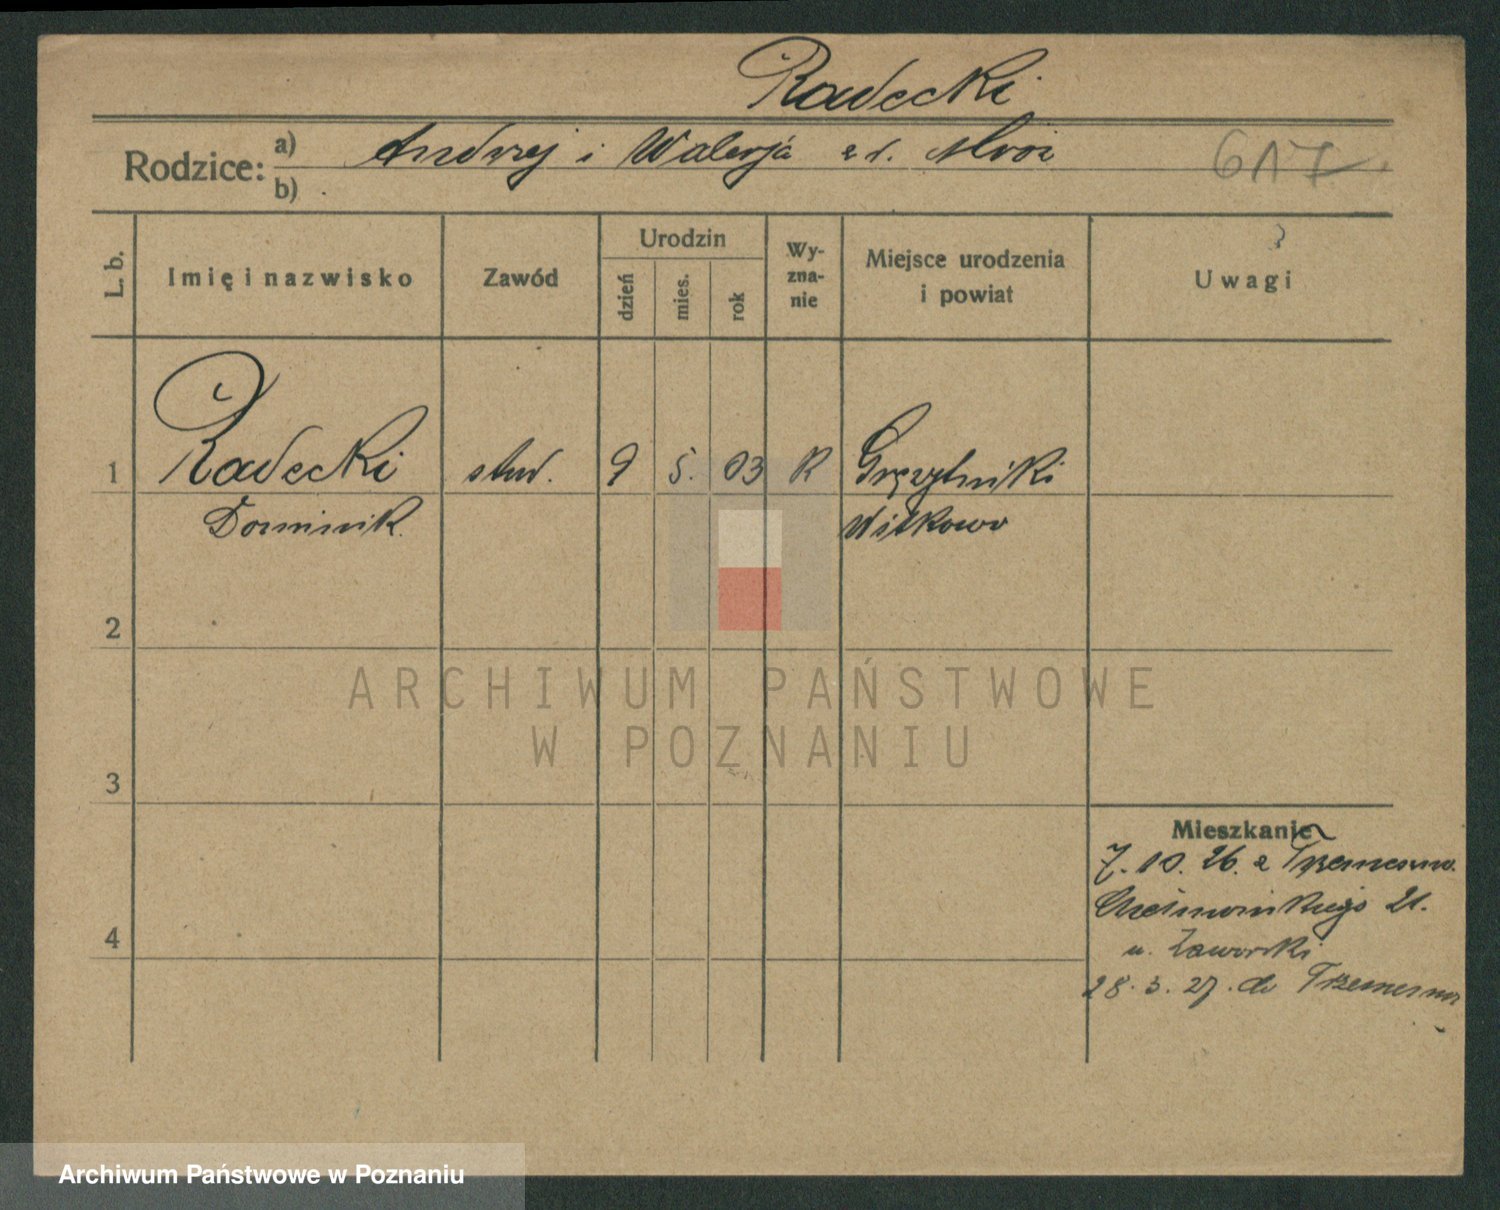 Radecki
Rodzice: a) Andrzej i Walerja z d. Mroz
b)
617
L. b.
Imię i nazwisko
Zawód
Urodzin
dzień
mies.
rok
Wy-
zna-
nie
Miejsce urodzenia
i powiat
Uwagi
1 Radecki stud. 9 5. 03 R Grzybniki
Dominik Witkowo
2
3
4
Mieszkanie
7. 10. 26. z Trzemeszna
21.
u. Zaworski
28. 3. 27. do Trzemeszna
ARCHIWUM PAŃSTWOWE
W POZNANIU
Archiwum Państwowe w Poznaniu